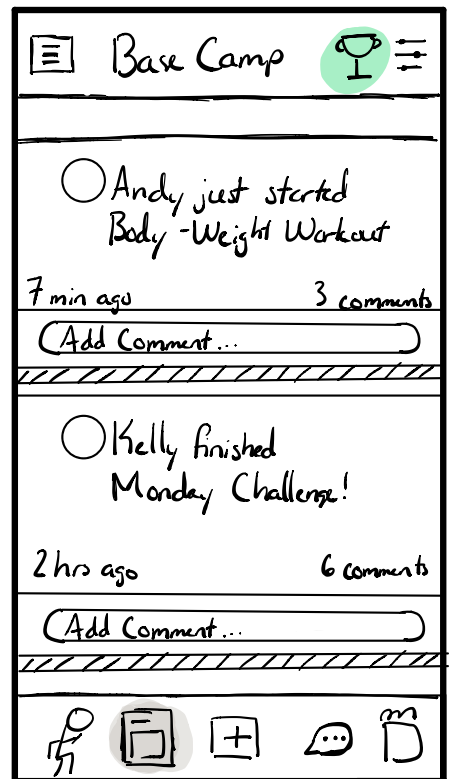 Base Camp
Andy just started
Body-Weight Workout
7 min ago 3 comments
Add Comment...
Kelly finished
Monday Challenge!
2 hrs ago 6 comments
Add Comment...